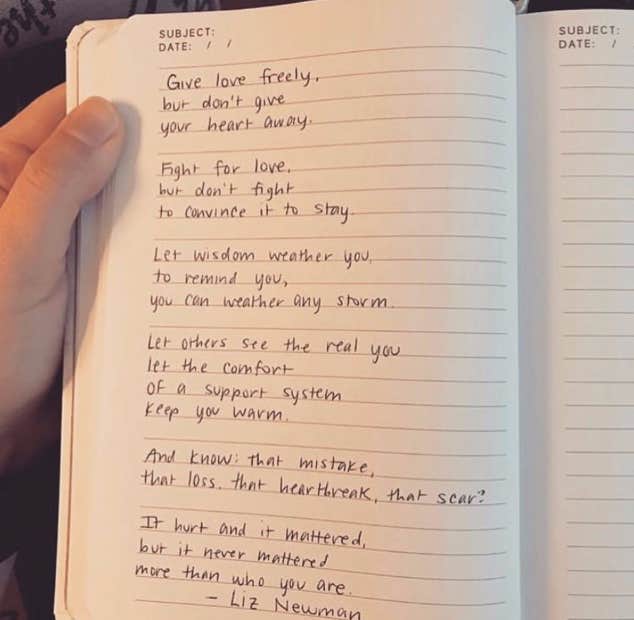 SUBJECT:
DATE: / /
Give love freely,
but don't give
your heart away.
Fight for love,
but don't fight
to convince it to stay.
Let wisdom weather you,
to remind you,
you can weather any storm.
Let others see the real you
let the comfort
of a support system
keep you warm.
And know: that mistake,
that loss, that heartbreak, that scar?
It hurt and it mattered,
but it never mattered
more than who you are.
- Liz Newman
SUBJECT:
DATE: /